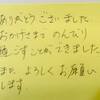 ありがとうございました
おかげさまで のんびり
過ごすことができました。
また よろしく お願い
します